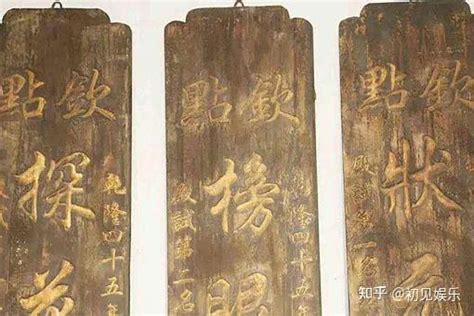 欽點
狀元
殿試第一名
欽點
榜眼
乾隆四十五年
殿試第二名
欽點
探花
乾隆四十五年
知乎 @初见娱乐